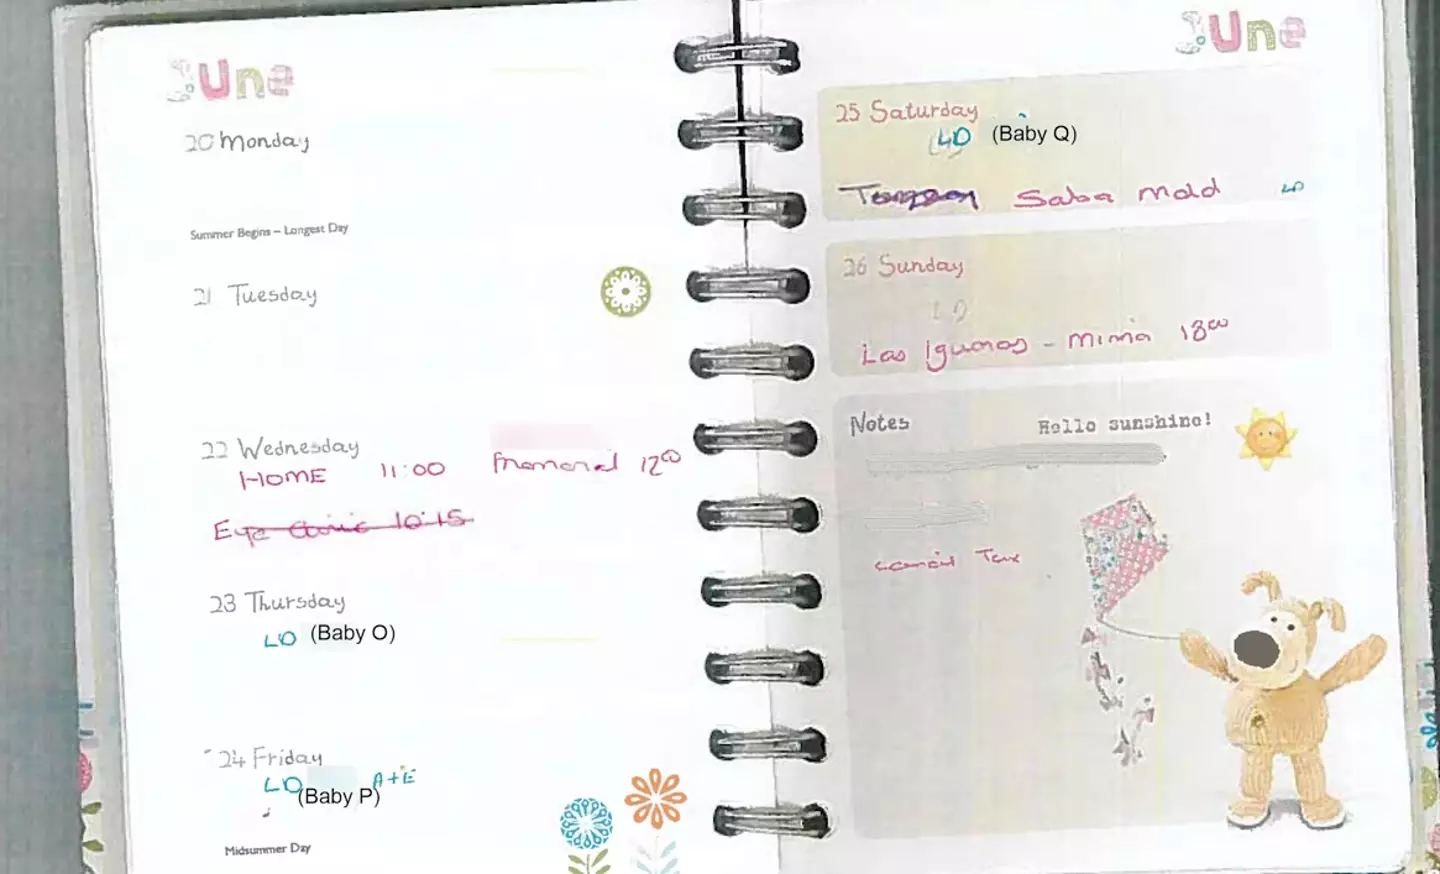 June
20 Monday
Summer Begins – Longest Day
21 Tuesday
22 Wednesday
HOME 11:00 12⁰⁰
Eye Clinic 10:15
23 Thursday
LD (Baby O)
24 Friday
LD (Baby P) A+E
Midsummer Day
June
25 Saturday
LD (Baby Q)
Salsa LD
26 Sunday
LD
Las Iguanas - 18⁰⁰
Notes
Hello sunshine!
Tax